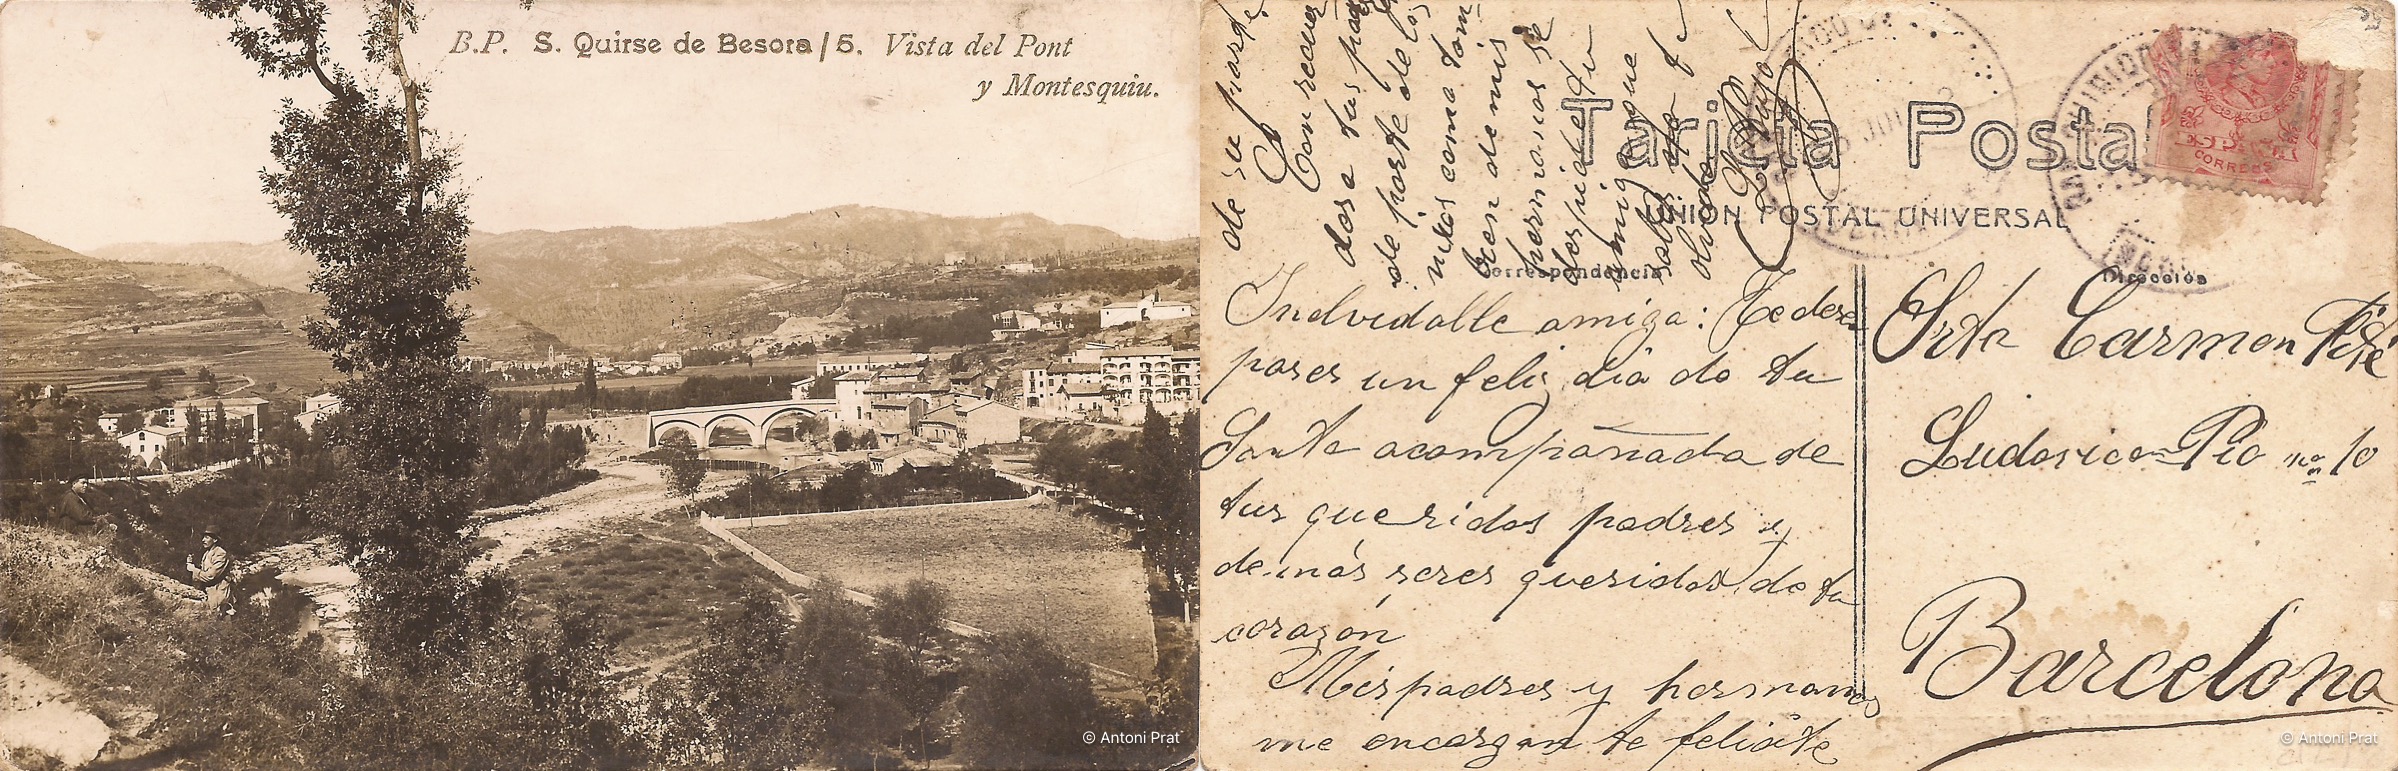 B.P. S. Quirse de Besora / 5. Vista del Pont
y Montesquiu.
© Antoni Prat
Tarjeta Postal
UNION POSTAL UNIVERSAL
Correspondencia
Dirección
CORREOS
Inolvidalle amiga: Te deseo
pases un feliz dia de tu
Santa acompañada de
tus queridos padres y
demás seres queridos de tu
corazón
Mis padres y hermanos
me encargan te felicite
de su parte.
Con recuer
dos a tus padres
de parte de los
mios como tam
bien de mis
hermanos se
despide tu
amiga que
sabes no te
olvida
Srta Carmen
Ludovico Pio nº 10
Barcelona
© Antoni Prat